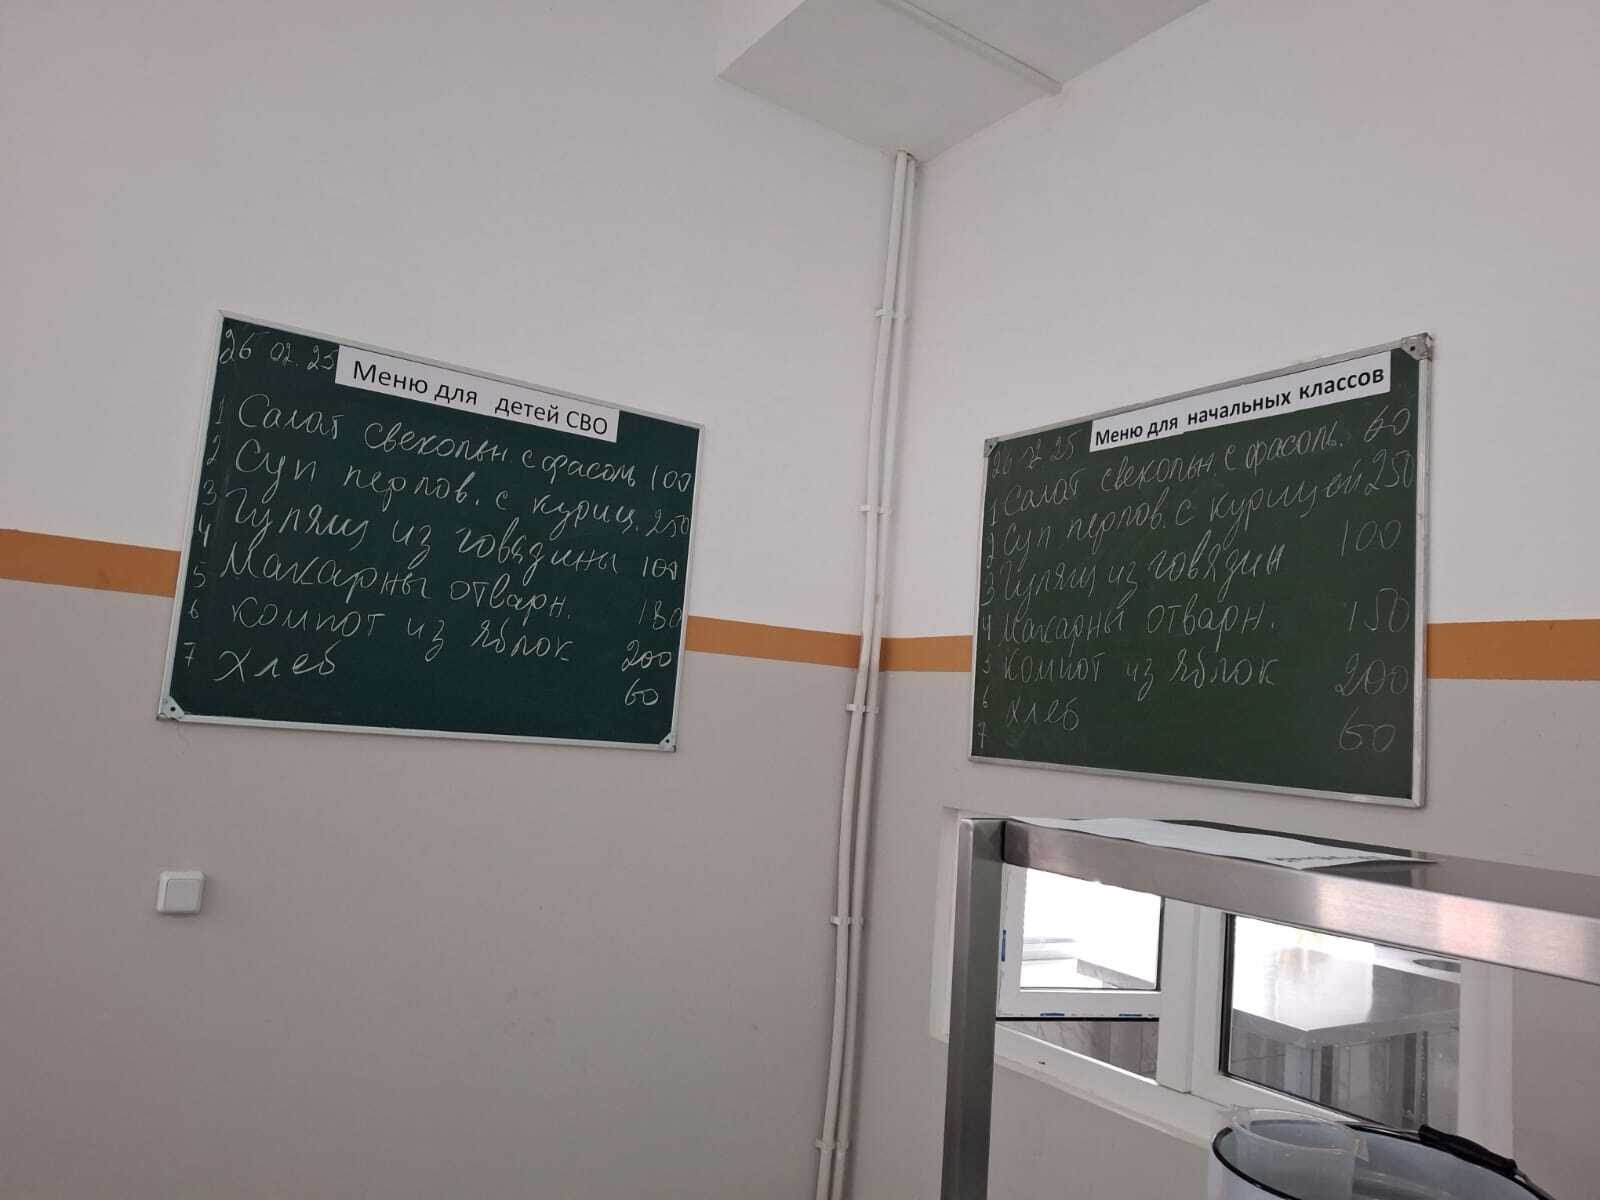 26 02. 25
Меню для детей СВО
1 Салат свекольн с фасоль 100
2 Суп перлов. с куриц. 250
3 Гуляш из говядины 100
4 Макарны отварн. 180
5 Компот из яблок 200
6 Хлеб 60
7
26 2 25
Меню для начальных классов
1 Салат свекольн с фасоль. 60
2 Суп перлов. с курицей 250
3 Гуляш из говядин 100
4 Макарны отварн. 150
5 Компот из яблок 200
6 Хлеб 60
7